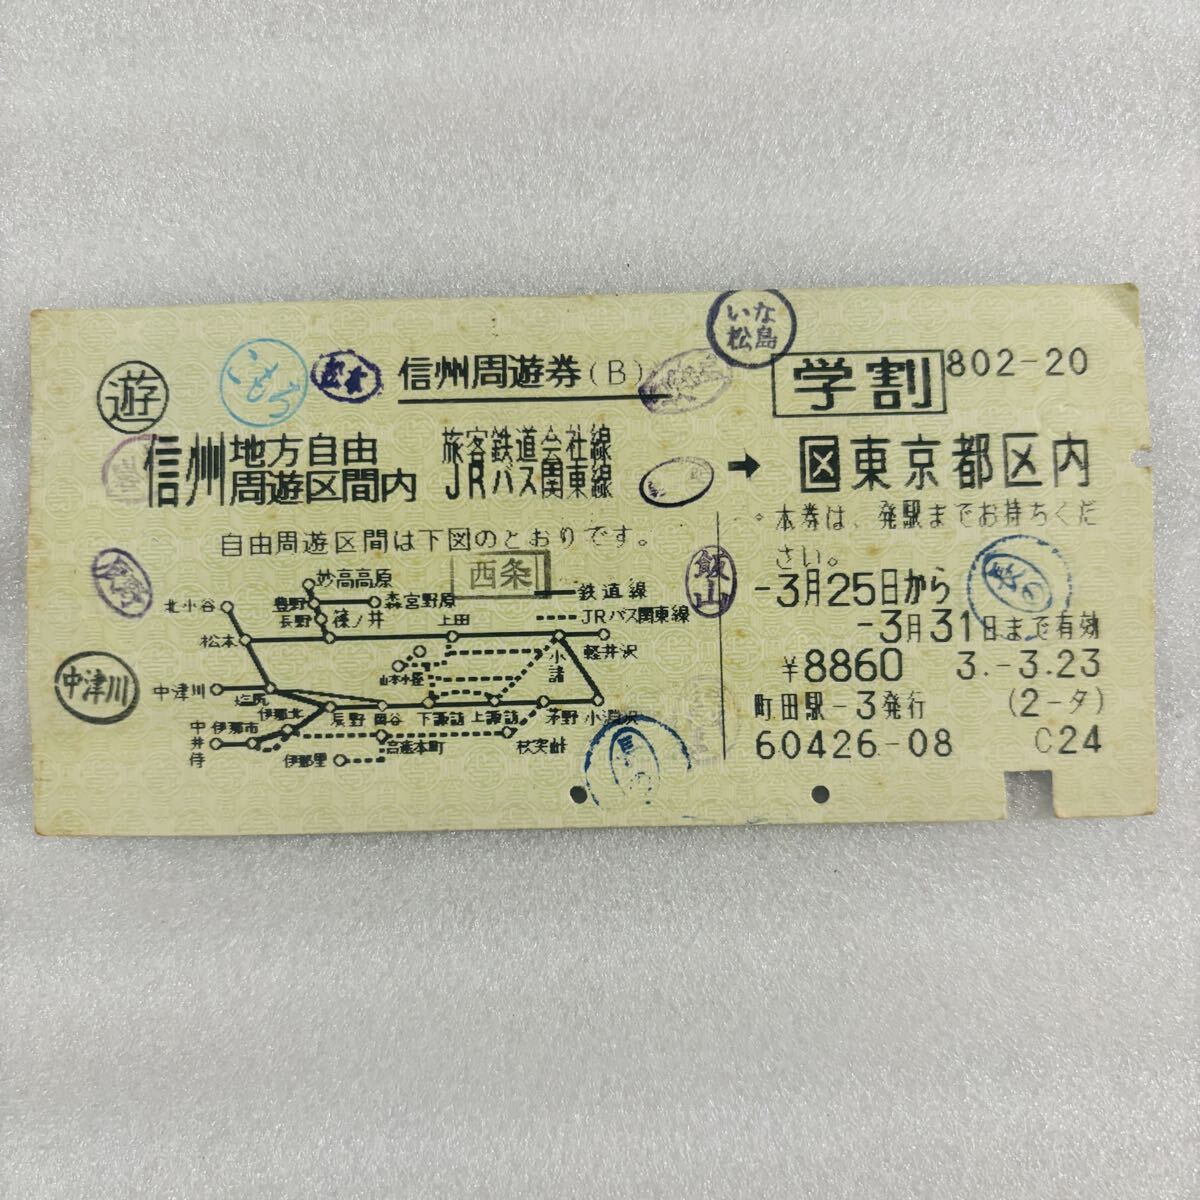 いな
松島
信州周遊券(B)
学割
802-20
遊
こもろ
松本
信州地方自由
周遊区間内
旅客鉄道会社線
JRバス関東線
➡
区東京都区内
自由周遊区間は下図のとおりです。
・本券は、発駅までお持ちくだ
さい。
西条
飯山
-3月25日から
-3月31日まで有効
¥8860 3.-3.23
町田駅-3発行 (2-タ)
60426-08 C24
鉄道線
JRバス関東線
妙高高原
北小谷
豊野
森宮野原
長野
篠ノ井
上田
松本
小諸
軽井沢
中津川
中津川
塩尻
伊那北
辰野
岡谷
下諏訪
上諏訪
茅野
小淵沢
伊那市
中井侍
伊那里
高遠本町
杖突峠
長の